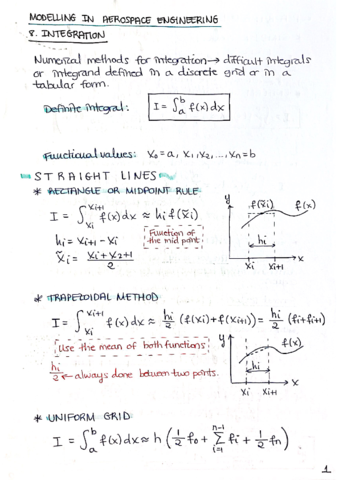 MODELLING IN AEROSPACE ENGINEERING
8. INTEGRATION
Numerical methods for integration → difficult integrals
or integrand defined in a discrete grid or in a
tabular form.
Definite integral: I = ∫ₐᵇ f(x) dx
Functional values: x₀ = a, x₁, x₂, ..., xₙ = b
STRAIGHT LINES
* RECTANGLE OR MIDPOINT RULE
I = ∫_{xi}^{xi+1} f(x) dx ≈ hi f(x̃i)
hi = xi+1 - xi
Function of
the mid point
x̃i = (xi + x2+1)/2
y f(x̃i) f(x)
hi
xi xi+1 x
* TRAPEZOIDAL METHOD
I = ∫_{xi}^{xi+1} f(x) dx ≈ hi/2 (f(xi) + f(xi+1)) = hi/2 (fi + fi+1)
Use the mean of both functions
hi/2 ← always done between two points.
y f(x)
hi
xi xi+1 x
* UNIFORM GRID
I = ∫ₐᵇ f(x) dx ≈ h (1/2 f₀ + ∑_{i=1}^{n-1} fi + 1/2 fn)
1